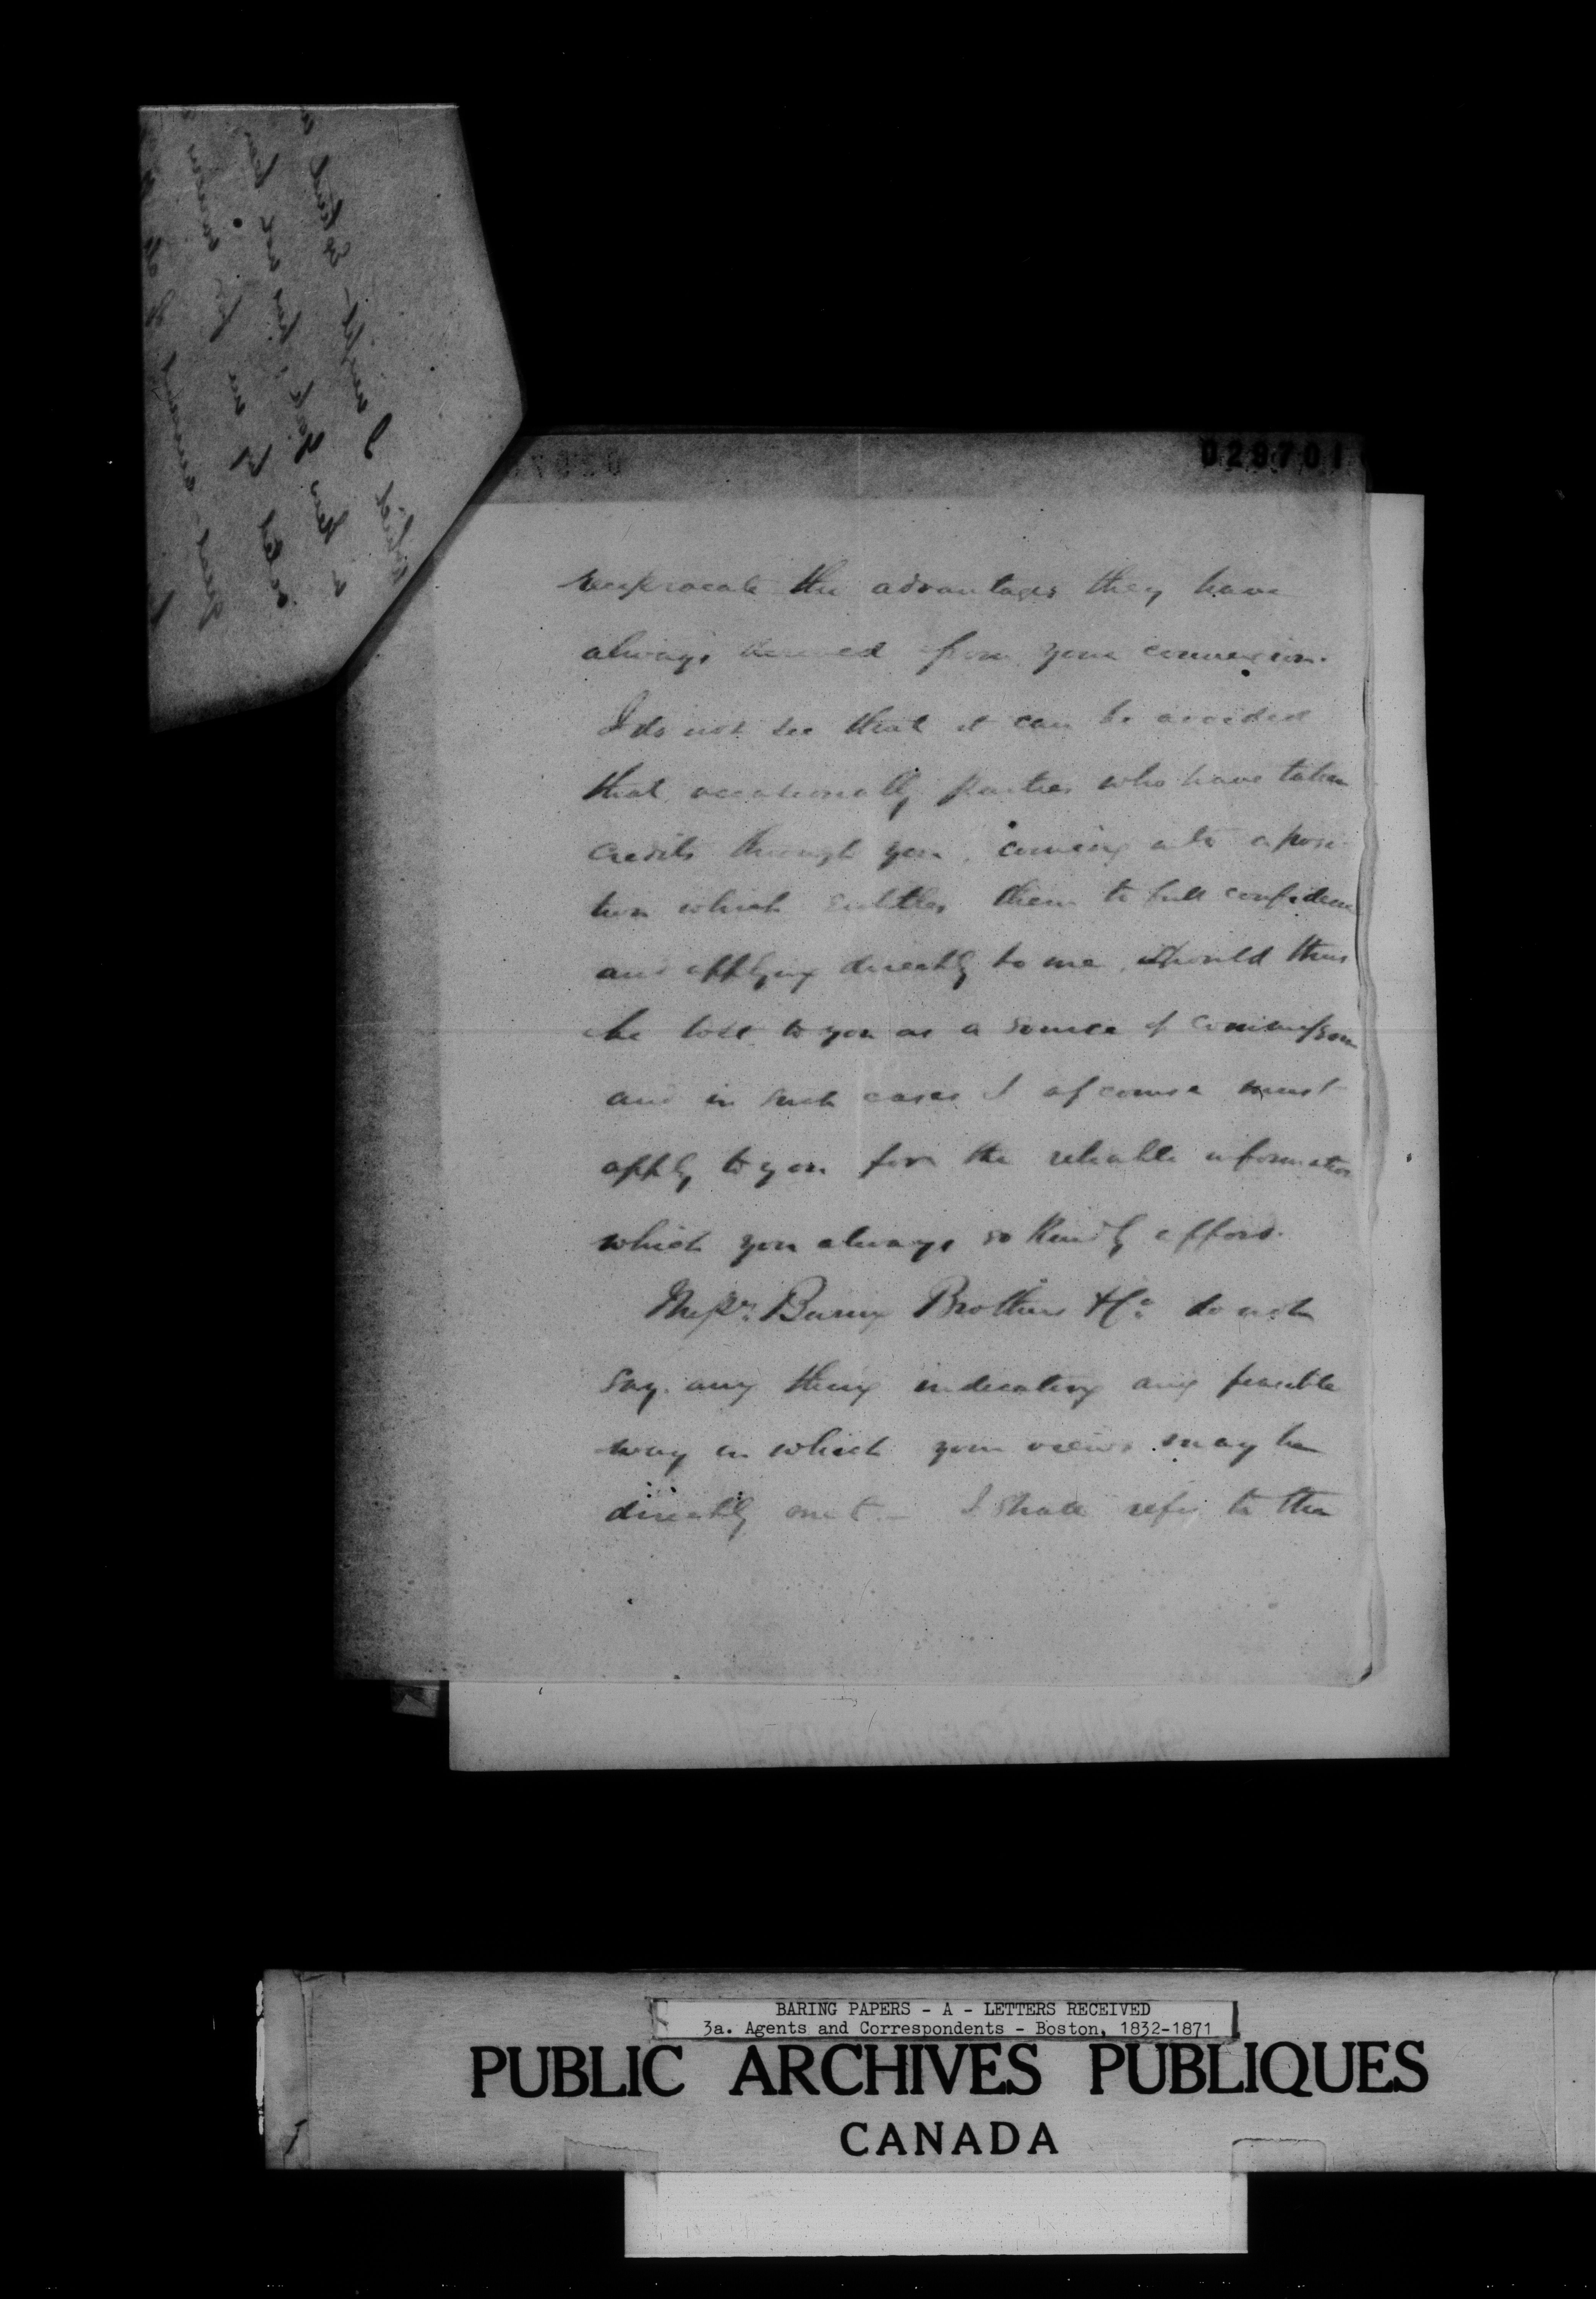 029701
reciprocate the advantages they have
always derived from your connexion.
I do not see that it can be avoided
that occasionally parties who have taken
credits through you, coming into a posi-
tion which entitles them to full confidence
and applying directly to me, should thus
be lost to you as a source of commission
and in such cases I of course must
apply to you for the reliable information
which you always so kindly afford.
Messrs. Baring Brothers & Co. do not
say any thing indicating any feasible
way in which your views may be
directly met. – I shall refer to the
BARING PAPERS - A - LETTERS RECEIVED
3a. Agents and Correspondents - Boston, 1832-1871
PUBLIC ARCHIVES PUBLIQUES
CANADA